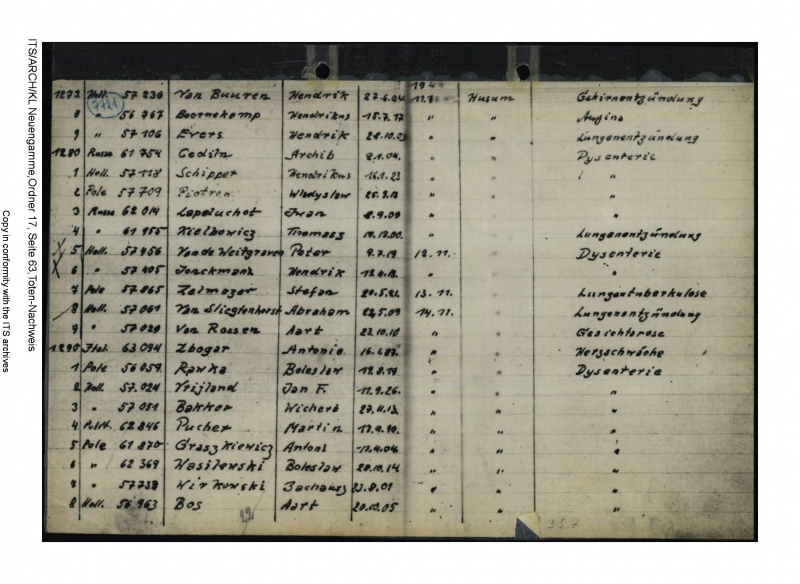 ITS/ARCH/KL Neuengamme,Ordner 17, Seite 63,Toten-Nachweis
Copy in conformity with the ITS archives
194
1272 Holl. 57 236 Van Buuren Hendrik 27.6.24 11.11. Husum Gehirnentzündung
7721
8 " 56 767 Boornekamp Hendrikus 15.7.17 " " Angina
9 " 57 106 Evers Hendrik 21.10.03 " " Lungenentzündung
1280 Russe 61 754 Gediln Archib 2.1.04. " " Dysenterie
1 Holl. 57 118 Schipper Hendrikus 16.1.23 " " "
2 Pole 57 709 Piotren Wladyslaw 25.2.13 " " "
3 Russe 62 014 Lapoluchot Iwan 8.9.09 " " "
4 " 61 955 Kielbowicz Thomasz 19.12.00. " " Lungenentzündung
X 5 Holl. 57 456 Van de Weitgraven Peter 9.7.19 12.11. " Dysenterie
X 6 " 57 405 Jonckmans Hendrik 12.4.12. " " "
7 Pole 57 065 Zelmozer Stefan 20.5.21. 13.11. " Lungentuberkulose
8 Holl. 57 061 Van Sliegtenhorst Abraham 22.5.09 14.11. " Lungenentzündung
9 " 57 029 Van Roosen Aart 23.10.10 " " Gesichtsrose
1290 Ital. 63 094 Zbogar Antonio 16.1.87. " " Herzschwäche
1 Pole 56 059 Rawka Boleslaw 12.8.19 " " Dysenterie
2 Holl. 57 024 Vrijland Jan F. 11.9.26. " " "
3 " 57 051 Bakker Wichert 27.11.13. " " "
4 Polit. 62 846 Pucher Martin 17.9.90. " " "
5 Pole 61 870 Graszkiewicz Antoni 17.4.04 " " "
6 " 62 369 Wasilewski Boleslaw 20.10.14 " " "
7 " 57738 Wirkowski Zachausz 23.8.01 " " "
8 Holl. 56 963 Bos Aart 20.10.05 " " "
22
357